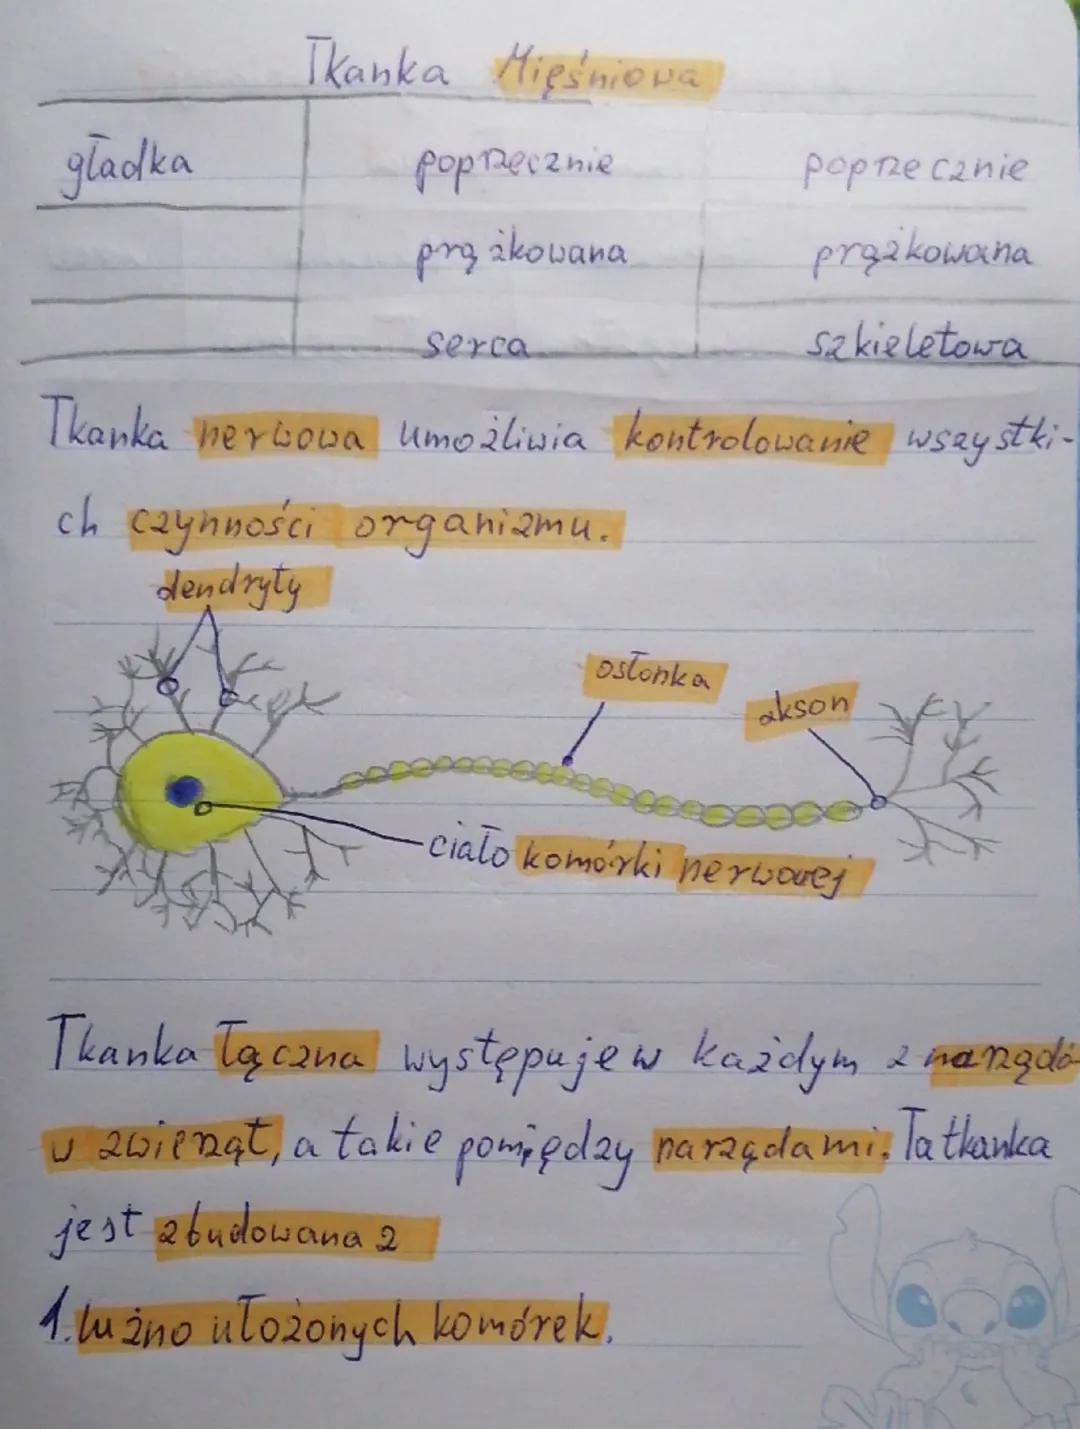 Tkanka Mięśniowa
gładka poprzecznie poprzecznie
prążkowana prążkowana
serca szkieletowa
Tkanka nerwowa umożliwia kontrolowanie wszystki-
ch czynności organizmu.
dendryty
osłonka
akson
ciało komórki nerwowej
Tkanka łączna występuje w każdym z narządó
w zwierząt, a takie pomiędzy narządami. Ta tkanka
jest zbudowana z
1. luźno ułożonych komórek.